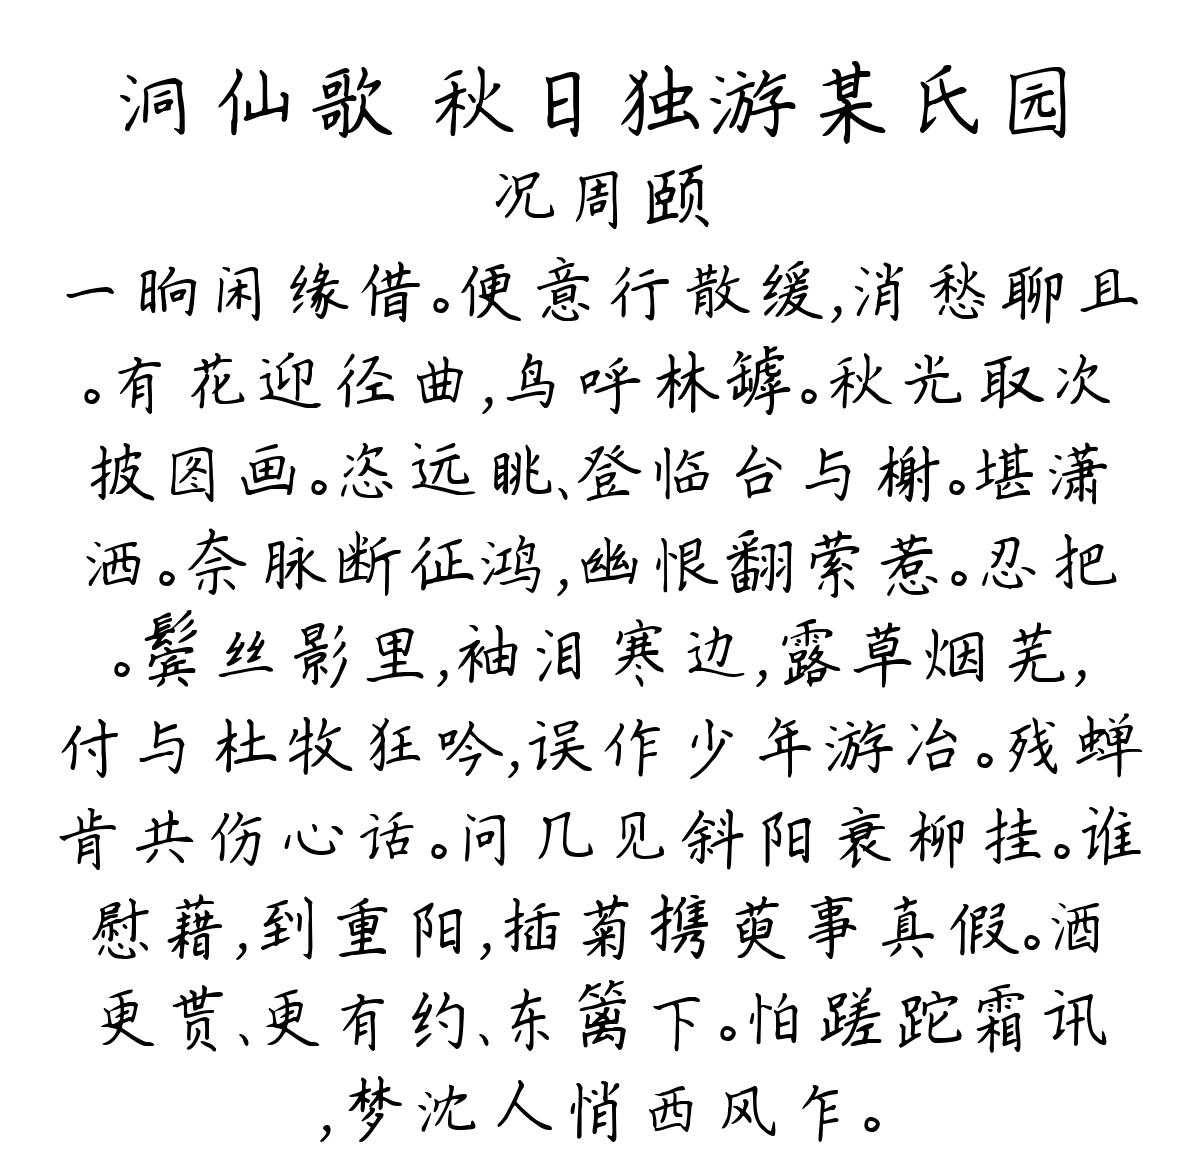 洞仙歌 秋日独游某氏园
况周颐
一晌闲缘借。便意行散缓,消愁聊且
。有花迎径曲,鸟呼林罅。秋光取次
披图画。恣远眺、登临台与榭。堪潇
洒。奈脉断征鸿,幽恨翻萦惹。忍把
。鬓丝影里,袖泪寒边,露草烟芜,
付与杜牧狂吟,误作少年游冶。残蝉
肯共伤心话。问几见斜阳衰柳挂。谁
慰藉,到重阳,插菊携萸事真假。酒
更贳、更有约、东篱下。怕蹉跎霜讯
,梦沈人悄西风乍。